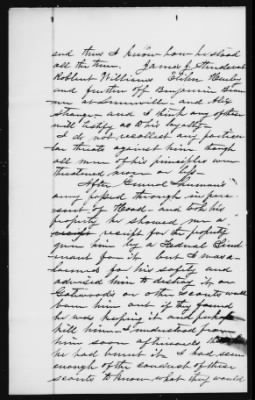 and thus I know how he stood
all the time. James J. Henderson
Robbert Williams
and further off Benjamin
at Summerville and Alex
Stranger and I think any of these
will testify as to his loyalty
I do not recollect any particu
lar threats against him though
all men of his principles were
threatened more or less
After General Sherman's
army passed through in pur
suit of Hood and took his
property he showed me a
receipt receipt for the property
given him by a Federal
for it but I was a
larmed for his safety and
advised him to destroy it, or
Gatewoods or other Scouts would
burn him out if they found
he was keeping it and perhaps
kill him I understood from
him soon afterwards that
he had burnt it I had seen
enough of the conduct of these
scouts to know what they would